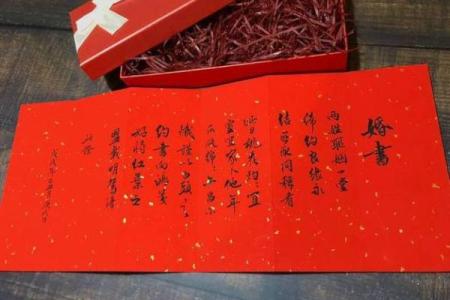 婚書
兩姓聯姻一堂
締約良緣永
結匹配同稱看
此日桃花灼灼宜
室宜家卜他年
瓜瓞綿綿尔昌尔
熾謹以白頭之
約書向鴻箋
好將红葉之
盟載明鴛譜
此證
戊戌年